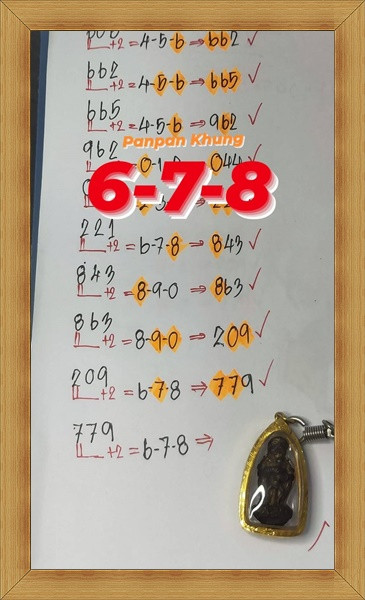 +2 = 4-5-6 ⇒ 662 ✓
662 +2 = 4-5-6 ⇒ 665 ✓
665 +2 = 4-5-6 ⇒ 962 ✓
Panpan Khung
962
6-7-8
221 +2 = 6-7-8 ⇒ 843 ✓
843 +2 = 8-9-0 ⇒ 863 ✓
863 +2 = 8-9-0 ⇒ 209 ✓
209 +2 = 6-7-8 ⇒ 779 ✓
779 +2 = 6-7-8 ⇒